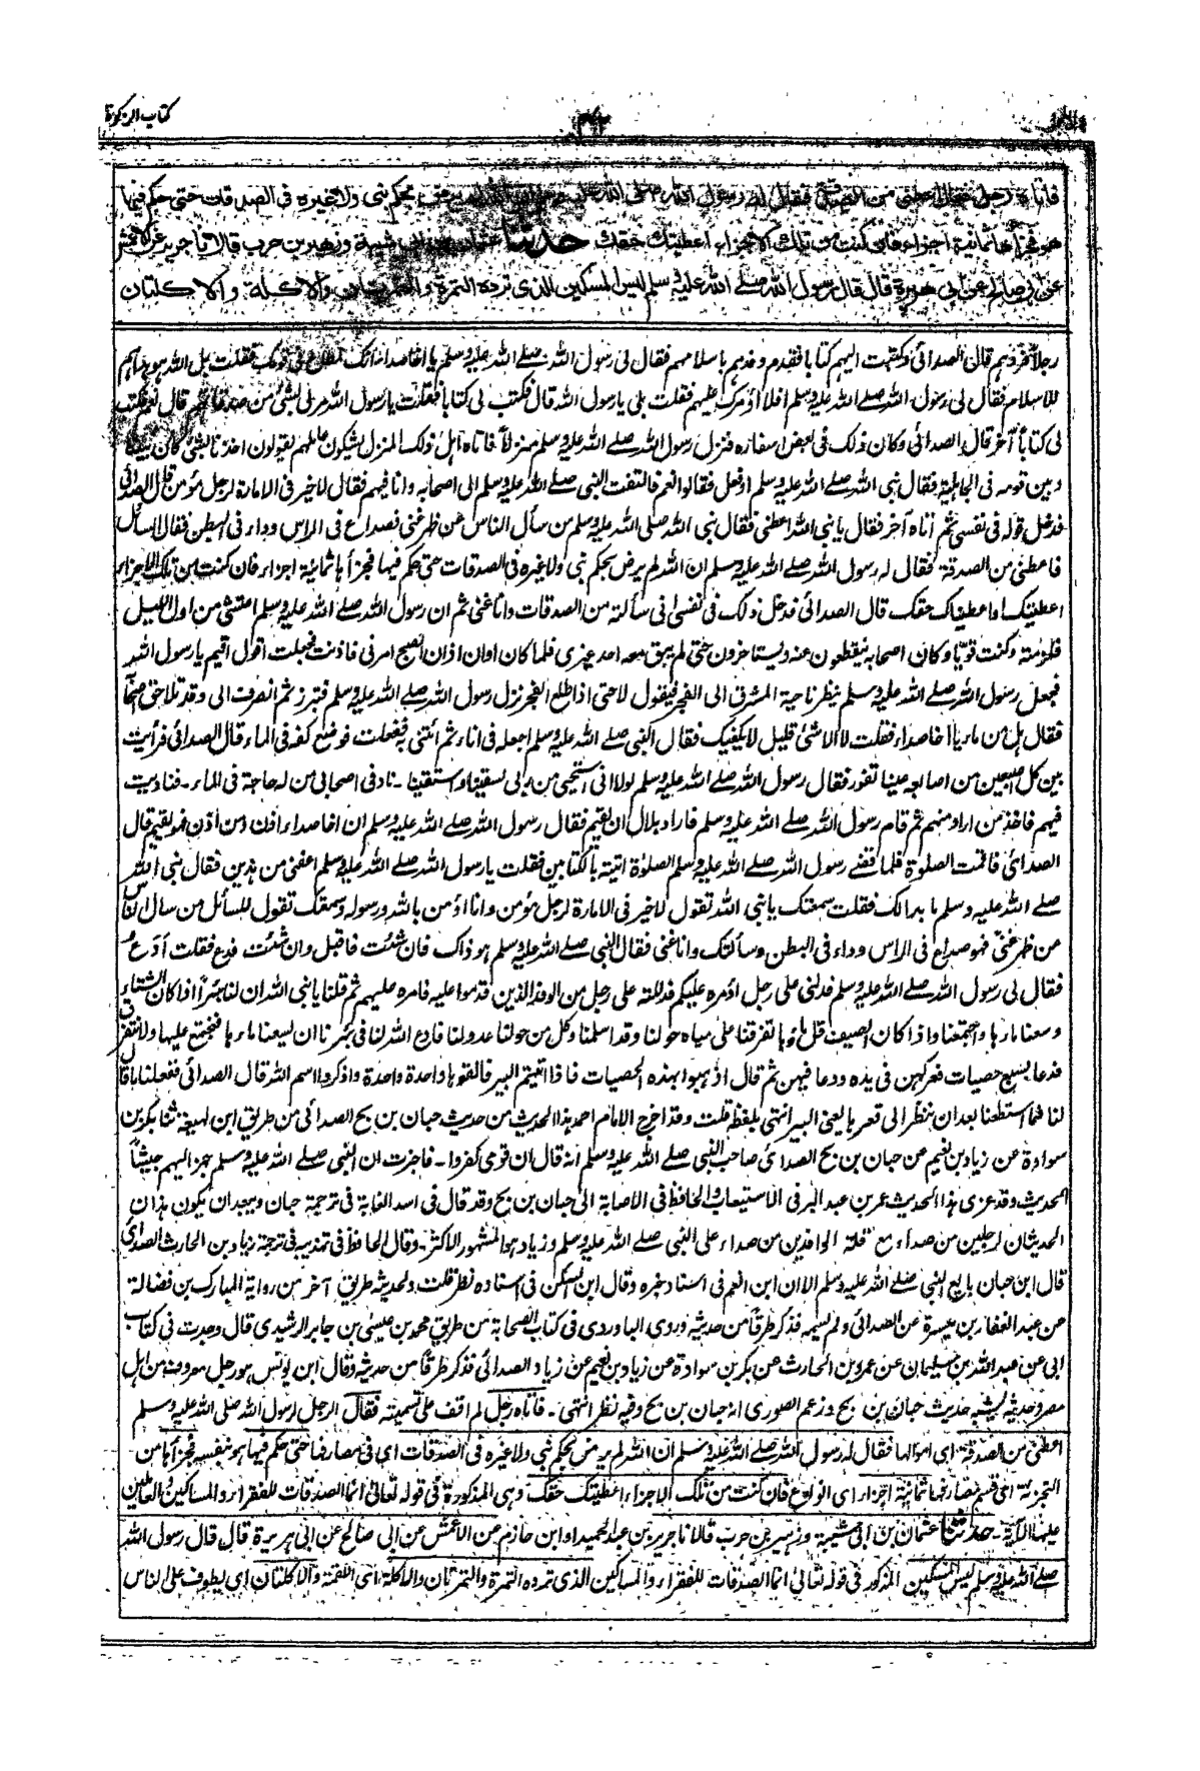 كتاب الزكوة
فاتاه رجل فقال اعطنى من الصدقة فقال له رسول الله صلى الله عليه ان الله لم يرض بحكم نبى ولا غيره فى الصدقات حتى حكم فيها
هو فجزأها ثمانية اجزاء فان كنت من تلك الاجزاء اعطيتك حقك حدثنا عثمان بن ابى شيبة وزهير بن حرب قالا نا جرير عن الاعمش
عن ابى صالح عن ابى هريرة قال قال رسول الله صلے الله عليه وسلم ليس المسكين الذى ترده التمرة والتمرتان والاكلة والاكلتان
رجلا فردهم قال الصدائى وكتبت اليهم كتابا فقدم وفدهم باسلامهم فقال لى رسول الله صلے الله عليه وسلم يا اخا صداء انك لمطاع فى قومك فقلت بل الله هو هداهم
للاسلام فقال لى رسول الله صلے الله عليه وسلم افلا اؤمرك عليهم فقلت بلى يا رسول الله قال فكتب لى كتابا فقلت يا رسول الله مر لى بشئ من صدقاتهم قال نعم فكتب
لى كتابا آخر قال الصدائى وكان ذلك فى بعض اسفاره فنزل رسول الله صلے الله عليه وسلم منزلا فاتاه اهل ذلك المنزل يشكون عاملهم يقولون اخذنا بشئ كان بيننا
وبين قومه فى الجاهلية فقال نبى الله صلے الله عليه وسلم اوفعل فقالوا نعم فالتفت النبى صلے الله عليه وسلم الى اصحابه وانا فيهم فقال لا خير فى الامارة لرجل مؤمن قال الصدائى
فدخل قوله فى نفسى ثم اتاه آخر فقال يا نبى الله اعطنى فقال نبى الله صلى الله عليه وسلم من سأل الناس عن ظهر غنى فصداع فى الراس وداء فى البطن فقال السائل
فاعطنى من الصدقة فقال له رسول الله صلے الله عليه وسلم ان الله لم يرض بحكم نبى ولا غيره فى الصدقات حتى حكم فيها فجزأها ثمانية اجزاء فان كنت من تلك الاجزاء
اعطيتك او اعطيناك حقك قال الصدائى فدخل ذلك فى نفسى انى سألته من الصدقات وانا غنى ثم ان رسول الله صلے الله عليه وسلم اعتشى من اول الليل
فلزمته وكنت قويا وكان اصحابه ينقطعون عنه ويستاخرون حتى لم يبق معه احد غيرى فلما كان اوان اذان الصبح امرنى فاذنت فجعلت اقول اقيم يا رسول الله
فجعل رسول الله صلے الله عليه وسلم ينظر ناحية المشرق الى الفجر فيقول لا حتى اذا طلع الفجر نزل رسول الله صلے الله عليه وسلم فتبرز ثم انصرف الى وقد تلاحق اصحابه
فقال هل من ماء يا اخا صداء فقلت لا الا شئ قليل لا يكفيك فقال النبى صلے الله عليه وسلم اجعله فى اناء ثم ائتنى به ففعلت فوضع كفه فى الماء قال الصدائى فرأيت
بين كل اصبعين من اصابعه عينا تفور فقال رسول الله صلے الله عليه وسلم لولا انى استحيى من ربى لسقينا واستقينا - ناد فى اصحابى من له حاجة فى الماء - فناديت
فيهم فاخذ من اراد منهم ثم قام رسول الله صلے الله عليه وسلم فاراد بلال ان يقيم فقال رسول الله صلے الله عليه وسلم ان اخا صداء اذن ومن اذن فهو يقيم قال
الصدائى فاقمت الصلوة فلما قضے رسول الله صلے الله عليه وسلم الصلوة اتيته بالكتابين فقلت يا رسول الله صلے الله عليه وسلم اعفنى من هذين فقال نبى الله
صلے الله عليه وسلم ما بدا لك فقلت سمعتك يا نبى الله تقول لا خير فى الامارة لرجل مؤمن وانا اؤمن بالله ورسوله وسمعتك تقول للسائل من سال الناس
من ظهر غنى فهو صداع فى الراس وداء فى البطن وسألتك وانا غنى فقال النبى صلے الله عليه وسلم هو ذاك فان شئت فاقبل وان شئت فدع فقلت أدع
فقال لى رسول الله صلے الله عليه وسلم فدلنى على رجل اؤمره عليكم فدللته على رجل من الوفد الذين قدموا عليه فامره عليهم ثم قلنا يا نبى الله ان لنا بئرا اذا كان الشتاء
وسعنا ماؤها واجتمعنا واذا كان الصيف قل ماؤها تفرقنا على مياه حولنا وقد اسلمنا وكل من حولنا عدو لنا فادع الله لنا فى بئرنا ان يسعنا ماؤها فنجتمع عليها ولا نتفرق
فدعا بسبع حصيات فعركهن فى يده ودعا فيهن ثم قال اذهبوا بهذه الحصيات فاذا اتيتم البير فالقوها واحدة واحدة واذكروا اسم الله قال الصدائى ففعلنا ما قال
لنا فما استطعنا بعد ان ننظر الى قعرها يعنى البير انتهى بلفظه قلت وقد اخرج الامام احمد هذا الحديث من حديث حبان بن بح الصدائى من طريق ابن لهيعة ثنا بكر بن
سوادة عن زياد بن نعيم عن حبان بن بح الصدائى صاحب النبى صلے الله عليه وسلم انه قال ان قومى كفروا - فاخبرت ان النبى صلے الله عليه وسلم جهز اليهم جيشا
الحديث وقد عزى هذا الحديث عمر بن عبد البر فى الاستيعاب والحافظ فى الاصابة الى حبان بن بح وقد قال فى اسد الغابة فى ترجمة حبان ويبعد ان يكون هذان
الحديثان لرجلين من صداء مع قلة الوافدين من صداء على النبى صلے الله عليه وسلم وزياد هو المشهور الاكثر - وقال الحافظ فى تهذيبه فى ترجمة زياد بن الحارث الصدائى
قال ابن حبان بايع النبى صلے الله عليه وسلم الا ان ابن انعم فى اسناد خبره وقال ابن السكن فى اسناده نظر قلت ولحديثه طريق آخر من رواية المبارك بن فضالة
عن عبد الغفار بن ميسرة عن الصدائى ولم يسمه فذكر طرفا من حديثه وروى الباوردى فى كتاب الصحابة من طريق محمد بن عيسى بن جابر الرشيدى قال وجدت فى كتاب
ابى عن عبد الله بن سليمان عن عمرو بن الحارث عن بكر بن سوادة عن زياد بن نعيم عن زياد الصدائى فذكر طرفا من حديثه وقال ابن يونس هو رجل معروف من اهل
مصر وحديثه يشبه حديث حبان بن بح وزعم الصورى انه حبان بن بح وفيه نظر انتهى - فاتاه رجل لم اقف على تسميته فقال الرجل لرسول الله صلى الله عليه وسلم
اعطنى من الصدقة اى اموالها فقال له رسول الله صلے الله عليه وسلم ان الله لم يرض بحكم نبى ولا غيره فى الصدقات اى فى مصارفها حتى حكم فيها هو بنفسه فجزأها من
التجزية اى قسم مصارفها ثمانية اجزاء اى انواع فان كنت من تلك الاجزاء اعطيتك حقك وهى المذكورة فى قوله تعالى انما الصدقات للفقراء والمساكين والعاملين
عليها الآية - حدثنا عثمان بن ابى شيبة وزهير بن حرب قالا نا جرير بن عبد الحميد او ابن حازم عن الاعمش عن ابى صالح عن ابى هريرة قال قال رسول الله
صلے الله عليه وسلم ليس المسكين المذكور فى قوله تعالى انما الصدقات للفقراء والمساكين الذى ترده التمرة والتمرتان والاكلة اى اللقمة والاكلتان اى يطوف على الناس